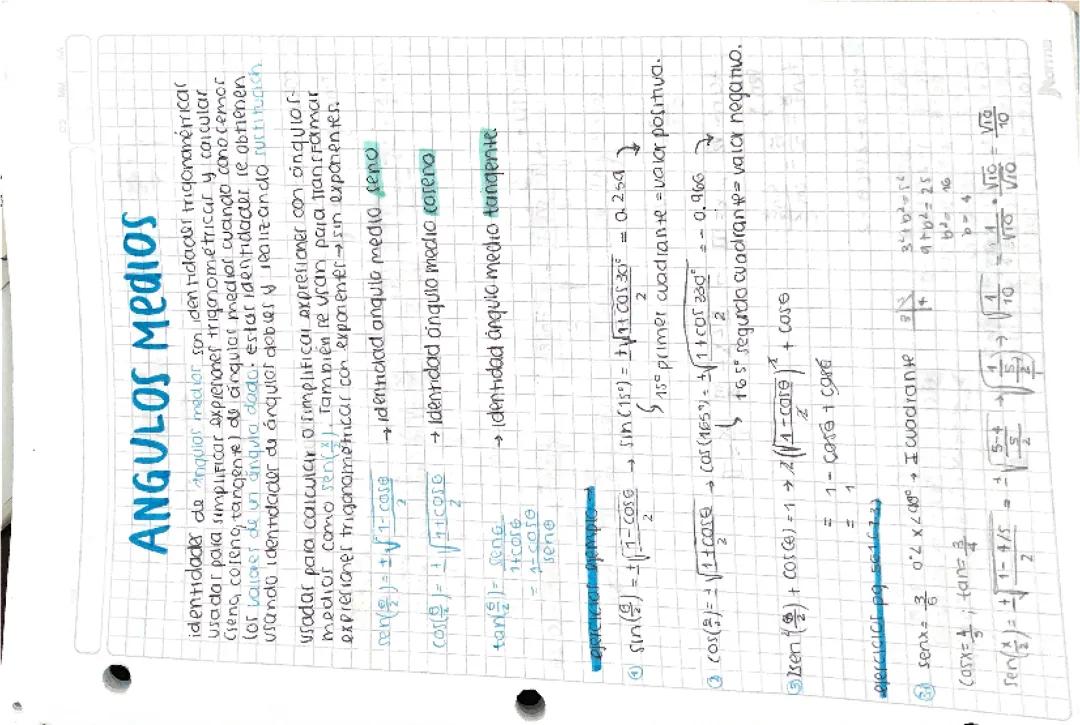 ANGULOS MedIOS
identidades de angulos medios son identidades trigonométricas
usadas para simplificar expresiones trigonométricas y calcular
(seno, coseno, tangente) de angulos medios cuando conocemos
los valores de un ángulo dado: estas identidades se obtienen
usando identidades de ángulos dobles y realizando sustitución
usadas para calcular o simplificar expresiones con ángulos
medios como sen(x/2). También se usan para transformar
expresiones trigonométricas con exponentes→sin exponentes.
sen(θ/2) = ±√((1-cosθ)/2) → identidad angulo medio seno
cos(θ/2) = ±√((1+cosθ)/2) → Identidad ángulo medio coseno
tan(θ/2) = senθ/(1+cosθ) → identidad ángulo medio tangente
= (1-cosθ)/senθ
ejercicios ejemplo→
① sin(θ/2) = ±√((1-cosθ)/2) → sin(15°) = ±√((1+cos30°)/2) = 0.259
15° primer cuadrante = valor positivo.
② cos(θ/2) = ±√((1+cosθ)/2) → cos(165°) = ±√((1+cos330°)/2) = -0.966
165° segundo cuadrante = valor negativo.
③ 2sen²(θ/2) + cos(θ) = 1 → 2(√((1-cosθ)/2))² + cosθ
= 1 - cosθ + cosθ
= 1
ejercicios pg
senx = 3/5 0°<x<90° → I cuadrante
3²+b²=5²
9+b²=25
b²= 16
b= 4
cosx = 4/5; tan = 3/4
sen(x/2) = ±√((1-4/5)/2) = ±√(((5-4)/5)/2) → √((1/5)/2) → √(1/10) = 1/√10 · √10/√10 = √10/10
Norma